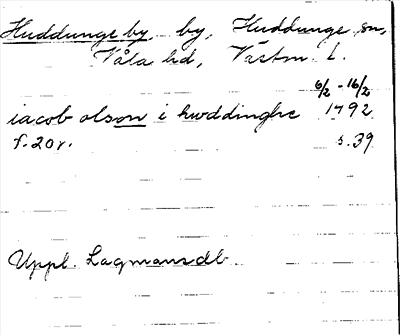 Huddunge by, by, Huddunge sn,
Våla hd, Västm. l.
6/2 - 16/2
iacob olson i hwddinghe 1492
f. 20r. s. 39
Uppl. Lagmansdb